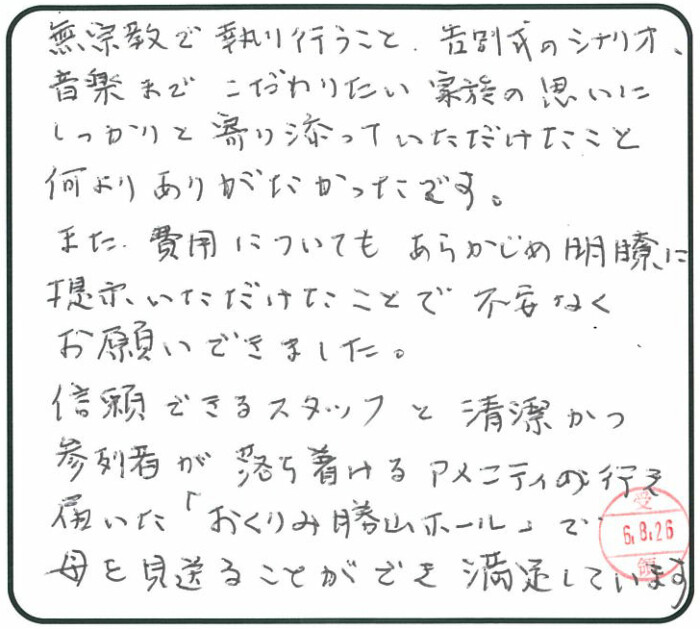 無宗教で執り行うこと、告別式のシナリオ、
音楽まで こだわりたい 家族の思いに
しっかりと寄り添っていただけたこと
何よりありがたかったです。
また、費用についても あらかじめ明瞭に
提示いただけたことで 不安なく
お願いできました。
信頼できるスタッフ と 清潔かつ
参列者が 落ち着けるアメニティの行き
届いた「おくりみ勝山ホール」で
母を見送ることができ 満足しています
受
6.8.26
領